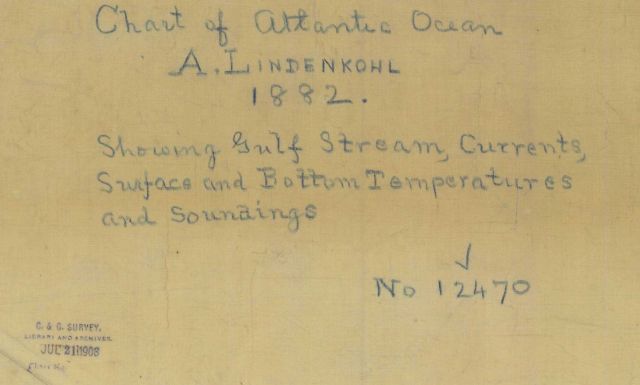 Chart of Atlantic Ocean
A. LINDENKOHL
1882.
Showing Gulf Stream, Currents,
Surface and Bottom Temperatures
and Soundings
No 12470
C. & G. SURVEY,
LIBRARY AND ARCHIVES.
JUL 21 1908